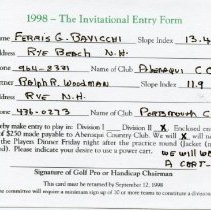 1998 – The Invitational Entry Form
Name FERRIS G. BAVICCHI Slope Index 13.4
RYE BEACH N.H.
964-8321 Name of Club ABENAQUI CC
RALPH R. WOODMAN Slope Index 11.9
RYE N.H.
436-0273 Name of Club PORTSMOUTH C
make entry to play in: Division I Division II X. Enclosed
of $250 made payable to Abenaqui Country Club. We will X will not
the Players Dinner Friday night after the practice round (Jacket
). Please indicate your desire to use a power cart. WE WILL
A CART
Signature of Golf Pro or Handicap Chairman
This card must be returned by September 12, 1998
committee will require a minimum sign up of 10 or more teams to constitute a division